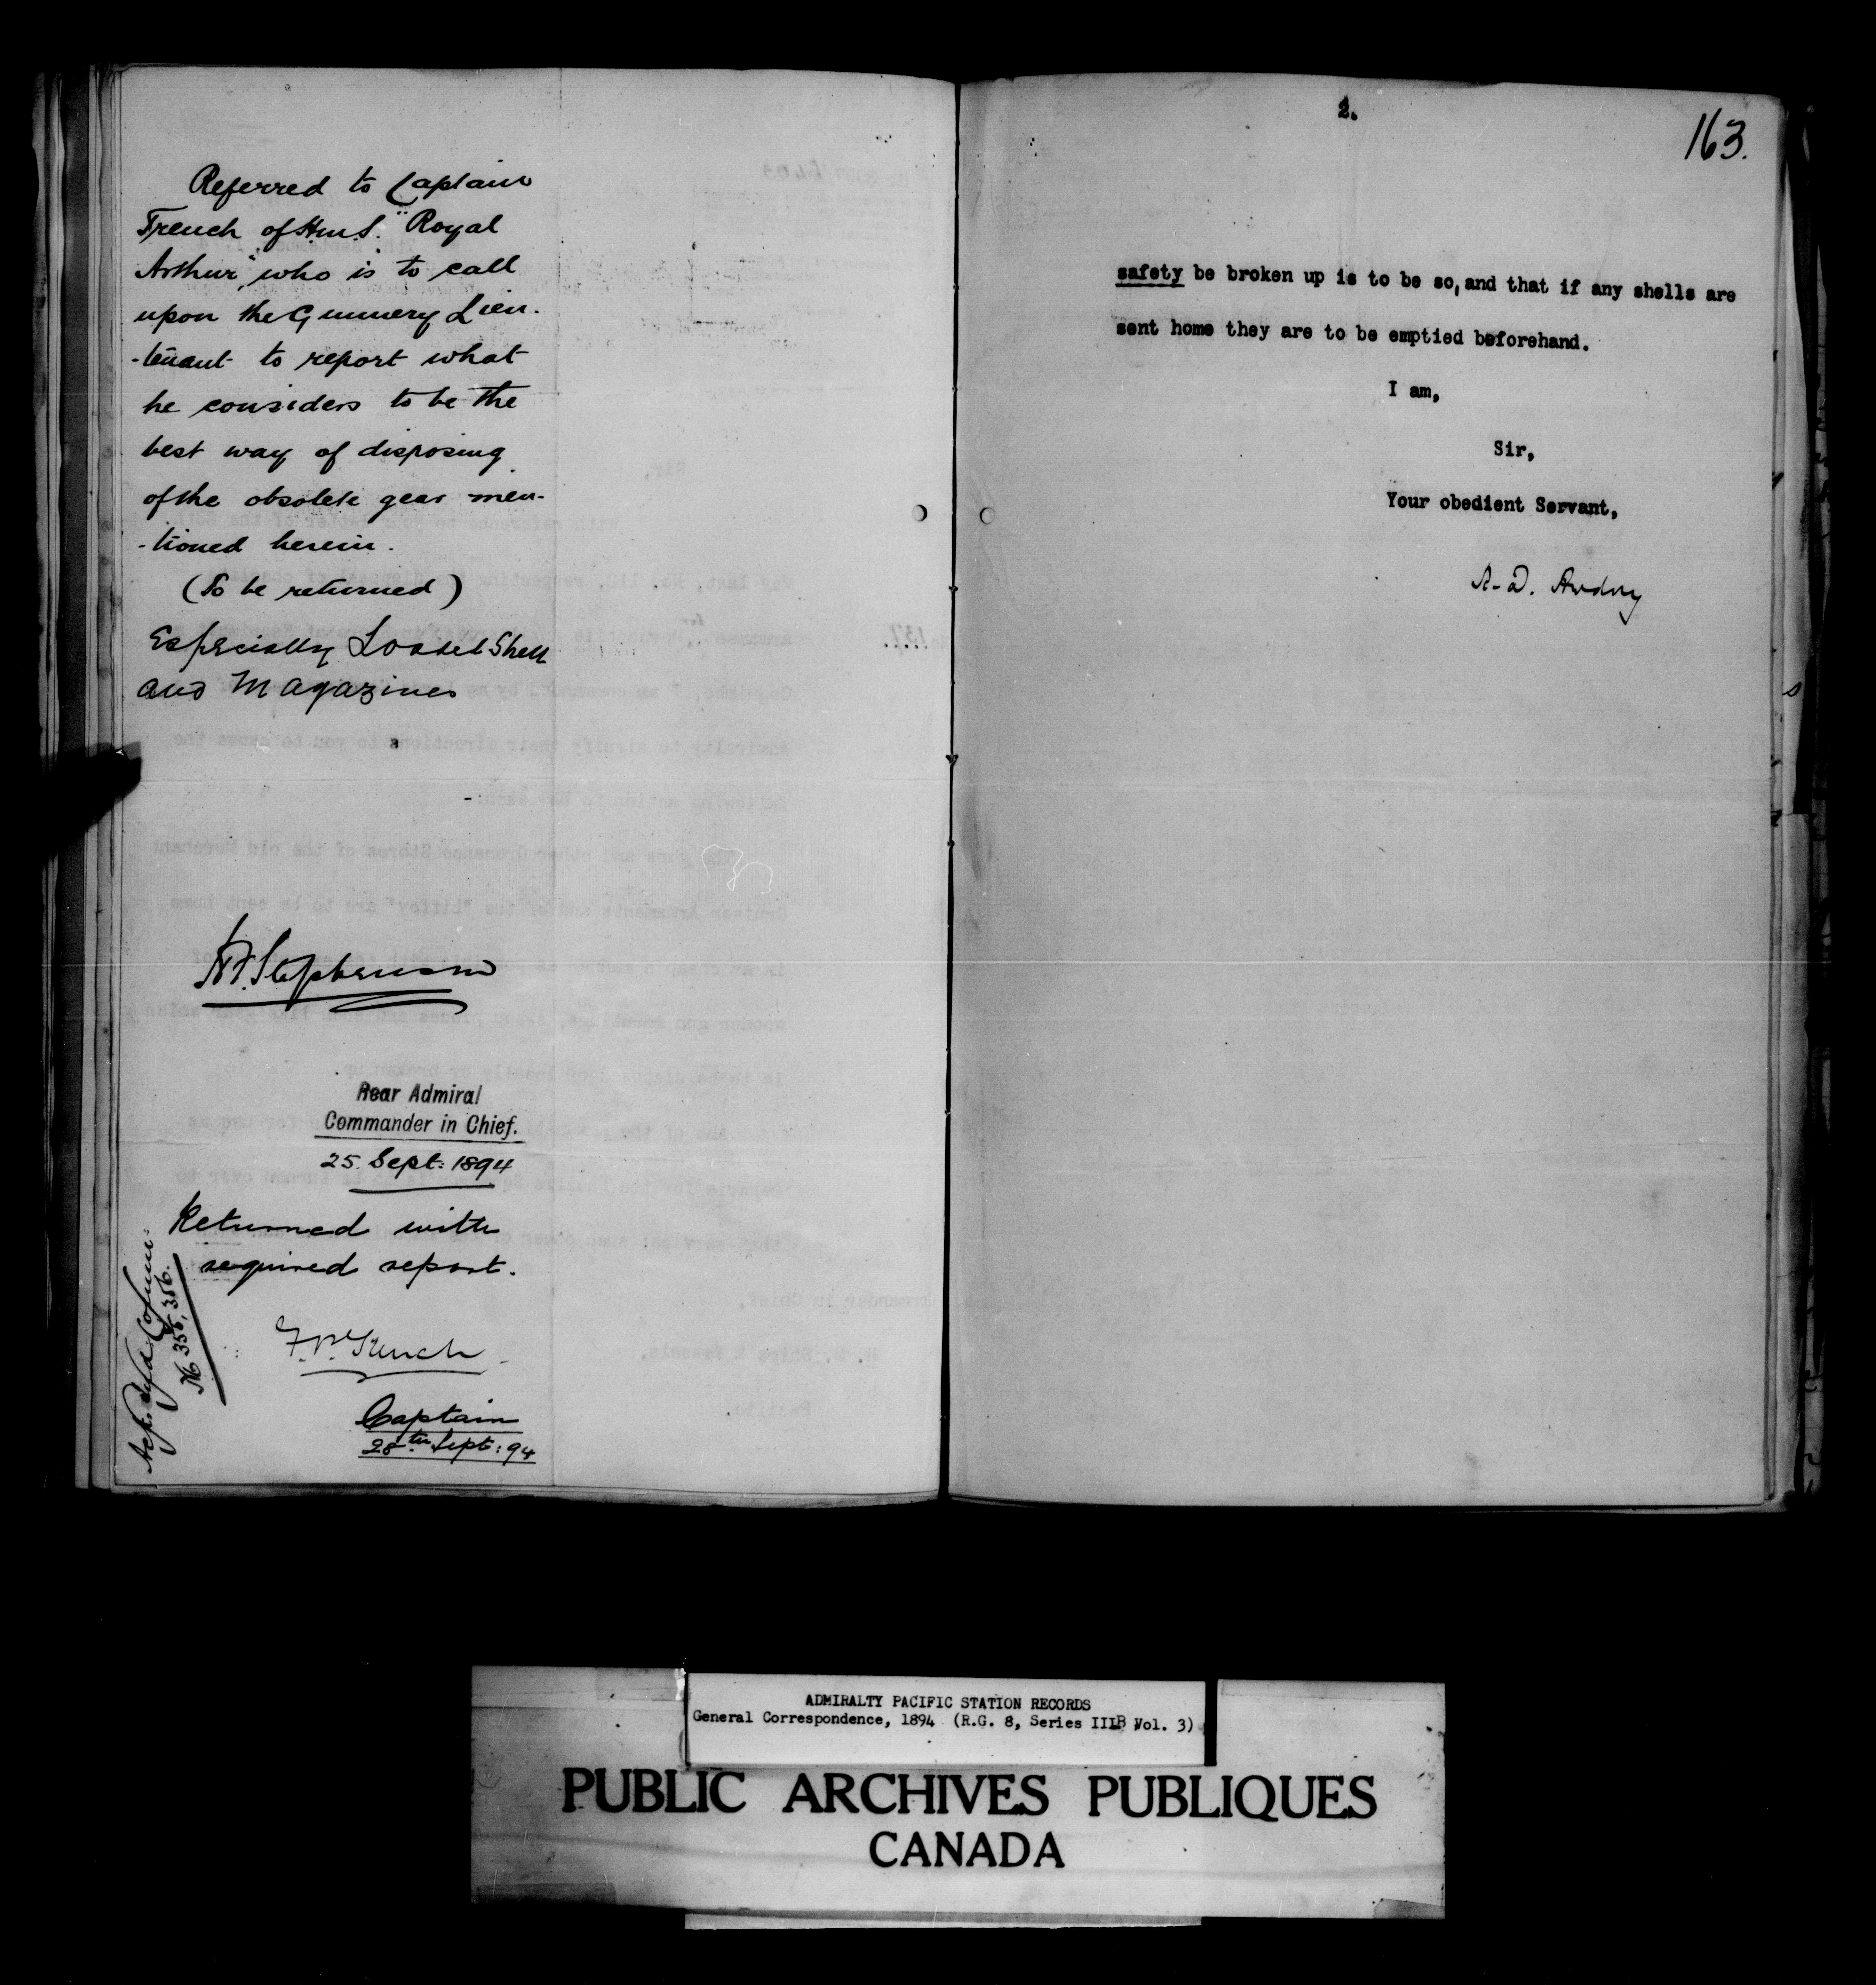 Referred to Captain
Trench of H.M.S. "Royal
Arthur", who is to call
upon the Gunnery Lieu-
-tenant to report what
he considers to be the
best way of disposing
of the obsolete gear men-
-tioned herein.
(To be returned)
Especially Loaded Shell
and Magazines
H.F. Stephenson
Rear Admiral
Commander in Chief.
25. Sept: 1894
Returned with
required report.
No 355, 356.
F.P. Trench
Captain
28th Sept: 94
2.
163.
safety be broken up is to be so, and that if any shells are
sent home they are to be emptied beforehand.
I am,
Sir,
Your obedient Servant,
A.D. Awdry
ADMIRALTY PACIFIC STATION RECORDS
General Correspondence, 1894 (R.G. 8, Series IIIB Vol. 3)
PUBLIC ARCHIVES PUBLIQUES
CANADA